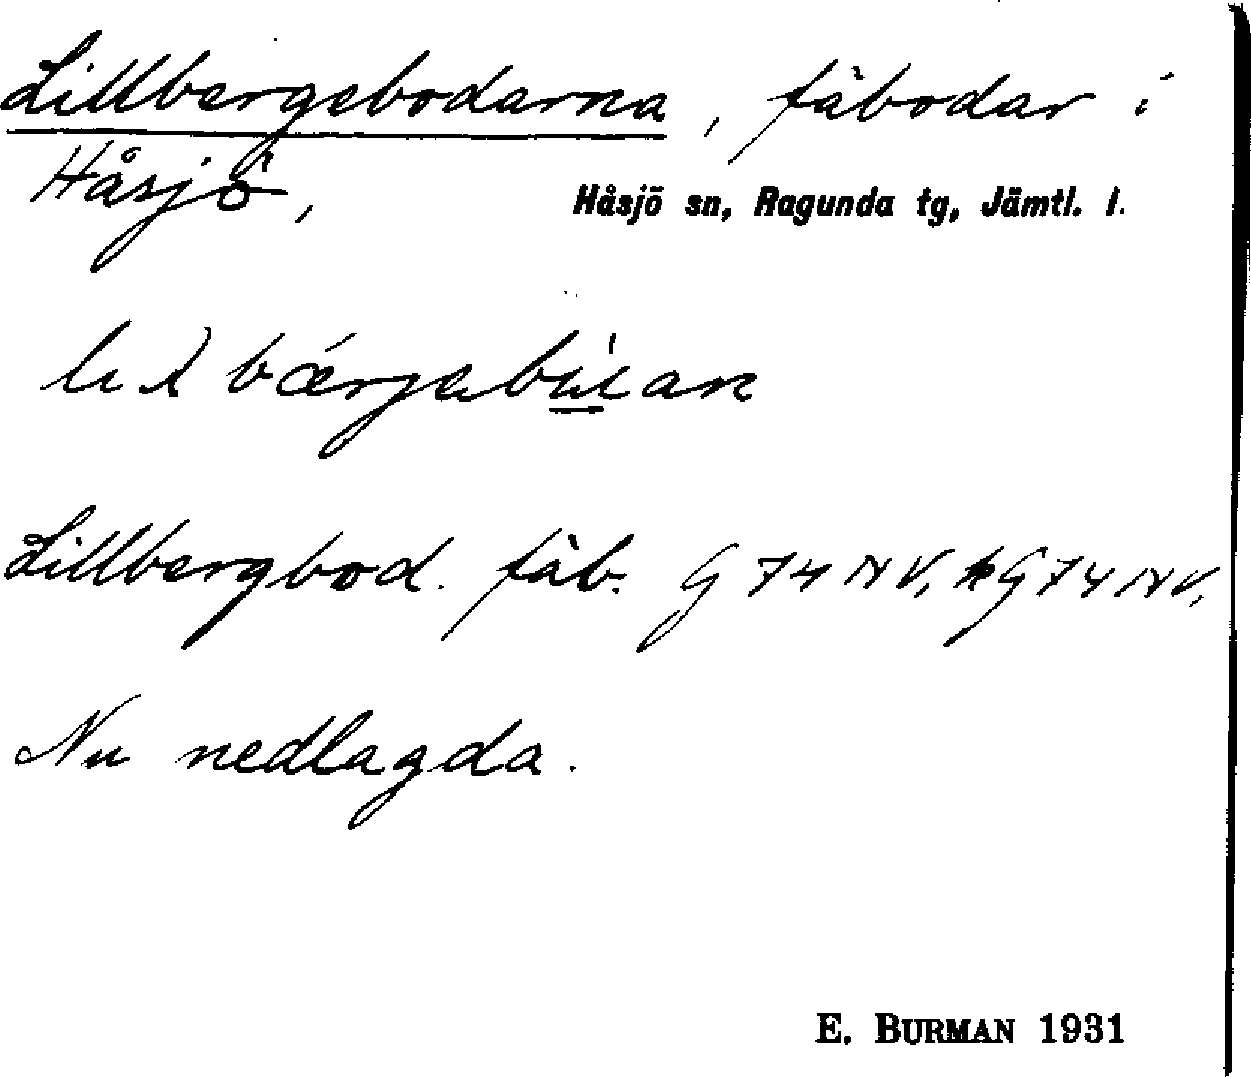 Lillbergebodarna, fäbodar i
Håsjö, Håsjö sn, Ragunda tg, Jämtl. l.
Lillbergbod. fäb. G 74 NV, G 74 NV,
Nu nedlagda.
E. BURMAN 1931